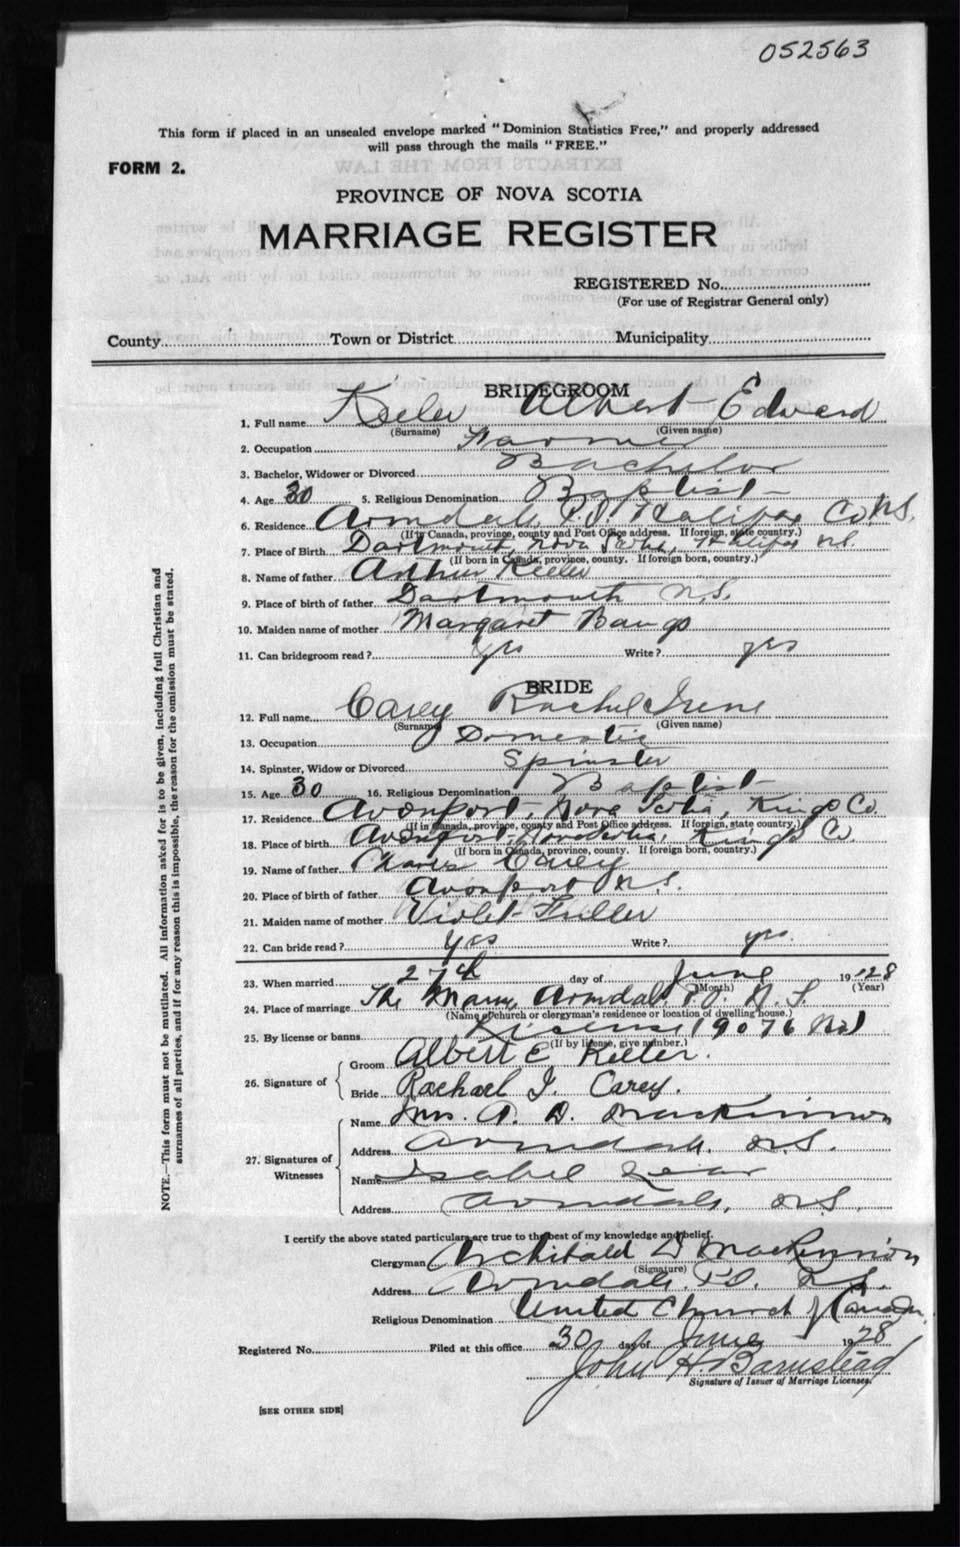 052563
This form if placed in an unsealed envelope marked "Dominion Statistics Free," and properly addressed
will pass through the mails "FREE."
FORM 2.
PROVINCE OF NOVA SCOTIA
MARRIAGE REGISTER
REGISTERED No.
(For use of Registrar General only)
County Town or District Municipality
BRIDEGROOM
1. Full name Keeler Albert Edward
(Surname) (Given name)
2. Occupation Farmer
3. Bachelor, Widower or Divorced Bachelor
4. Age 30 5. Religious Denomination Baptist
6. Residence Armdale P.O. Halifax Co. N.S.
(If in Canada, province, county and Post Office address. If foreign, state country.)
7. Place of Birth Dartmouth, Nova Scotia, Halifax N.S.
(If born in Canada, province, county. If foreign born, country.)
8. Name of father Arthur Keeler
9. Place of birth of father Dartmouth N.S.
10. Maiden name of mother Margaret
11. Can bridegroom read? yes Write? yes
BRIDE
12. Full name Carey Rachel Irene
(Surname) (Given name)
13. Occupation Domestic
14. Spinster, Widow or Divorced Spinster
15. Age 30 16. Religious Denomination Baptist
17. Residence Avonport, Nova Scotia, Kings Co.
(If in Canada, province, county and Post Office address. If foreign, state country.)
18. Place of birth Avonport, Nova Scotia, Kings Co.
(If born in Canada, province, county. If foreign born, country.)
19. Name of father Charles Carey
20. Place of birth of father Avonport N.S.
21. Maiden name of mother Violet
22. Can bride read? yes Write? yes.
23. When married 27th day of June 1928
(Month) (Year)
24. Place of marriage The Manse, Armdale P.O. N.S.
(Name of church or clergyman's residence or location of dwelling house.)
25. By license or banns License 19076
(If by license, give number.)
26. Signature of
Groom Albert E Keeler.
Bride Rachael I. Carey.
27. Signatures of Witnesses
Name Mrs. A. D. MacKinnon
Address Armdale, N.S.
Name Isabel
Address Armdale, N.S.
I certify the above stated particulars are true to the best of my knowledge and belief.
Clergyman Archibald D MacKinnon
(Signature)
Address Armdale P.O. N.S.
Religious Denomination United Church of Canada
Registered No. Filed at this office 30 day of June 1928
John H. Barnstead
Signature of Issuer of Marriage Licenses.
[SEE OTHER SIDE]
NOTE.—This form must not be mutilated. All information asked for is to be given, including full Christian and
surnames of all parties, and if for any reason this is impossible, the reason for the omission must be stated.